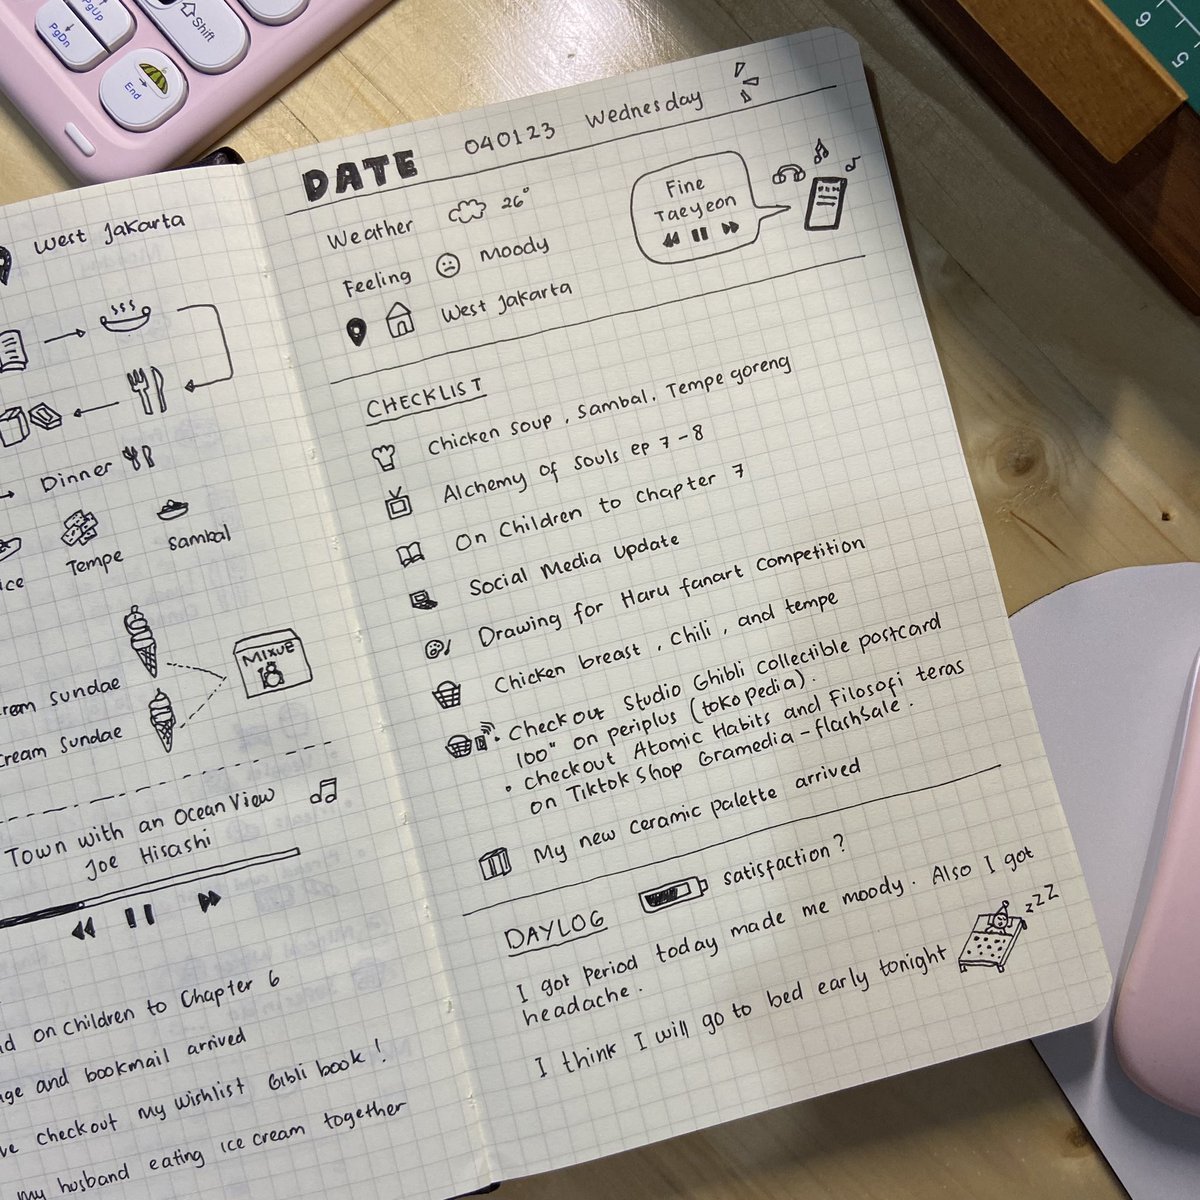 PgUp
PgDn
Shift
End
6
5
West Jakarta
Dinner
Tempe
sambal
MIXUE
sundae
cream sundae
Town with an Ocean View
Joe Hisashi
on Children to Chapter 6
and bookmail arrived
checkout my wishlist Gibli book!
my husband eating ice cream together
DATE 040123 Wednesday
Weather 26°
Feeling moody
West Jakarta
Fine
Taeyeon
CHECKLIST
Chicken soup, Sambal, Tempe goreng
Alchemy of souls ep 7-8
On Children to Chapter 7
Social Media Update
Drawing for Haru fanart competition
Chicken breast, chili, and tempe
• Checkout Studio Ghibli collectible postcard
100" on periplus (tokopedia).
• checkout Atomic Habits and Filosofi teras
on Tiktok Shop Gramedia - flashsale.
My new ceramic palette arrived
DAYLOG satisfaction?
I got period today made me moody. Also I got
headache.
I think I will go to bed early tonight
zzz